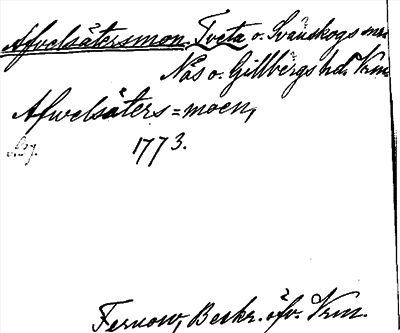 Afvelsätersmon, Tveta o. Svanskogs snr
Näs o. Gillbergs hd. Vrm
Afwelsäters=moen,
1773.
Fernow, Beskr. öfv. Vrm.